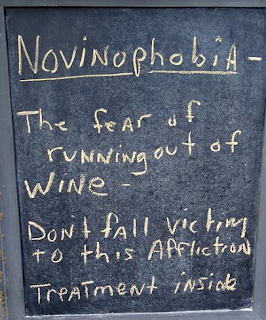 NOVINOPHOBIA -
The feAR of
RUNNING out of
WINE -
DON't fAll victim
to this AffLiCTION
TREATMENT iNside